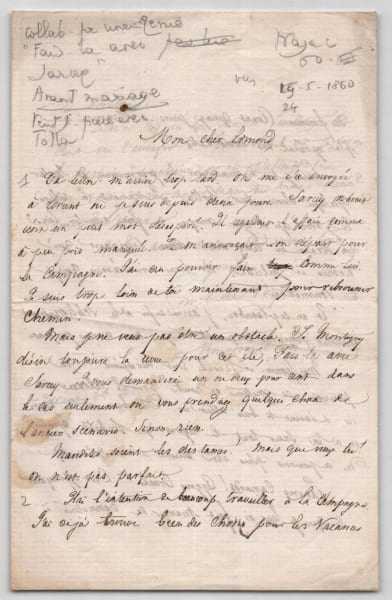 collab pr une Revue
"Fais la avec
Sarcey"
Avant mariage
Tolla
Najac
60.
15-5-1860
24
Mon cher Edmond
1 Ta lettre m'arrive trop tard. on me l'a envoyée
à Lorient où je suis depuis deux jours. Sarcey
un petit mot désespéré. Il l'affaire comme
à peu près manquée. Et m'annonçait son départ pour
la Campagne. J'ai cru pouvoir faire comme lui.
Je suis trop loin de toi maintenant pour rebrousser
Chemin.
Mais je ne veux pas être un obstacle. Si Montigny
désire toujours la revue pour cet été, fais la avec
Sarcey. Je vous demanderai un ou deux pour cent dans
le cas seulement où vous prendriez quelque chose de
l'ancien scénario. Sinon, rien.
Maudites soient les distances. Mais que veux tu?
on n'est pas parfait
2 J'ai l'intention de beaucoup travailler à la Campagne.
J'ai déjà trouvé bien des choses pour les Vacances